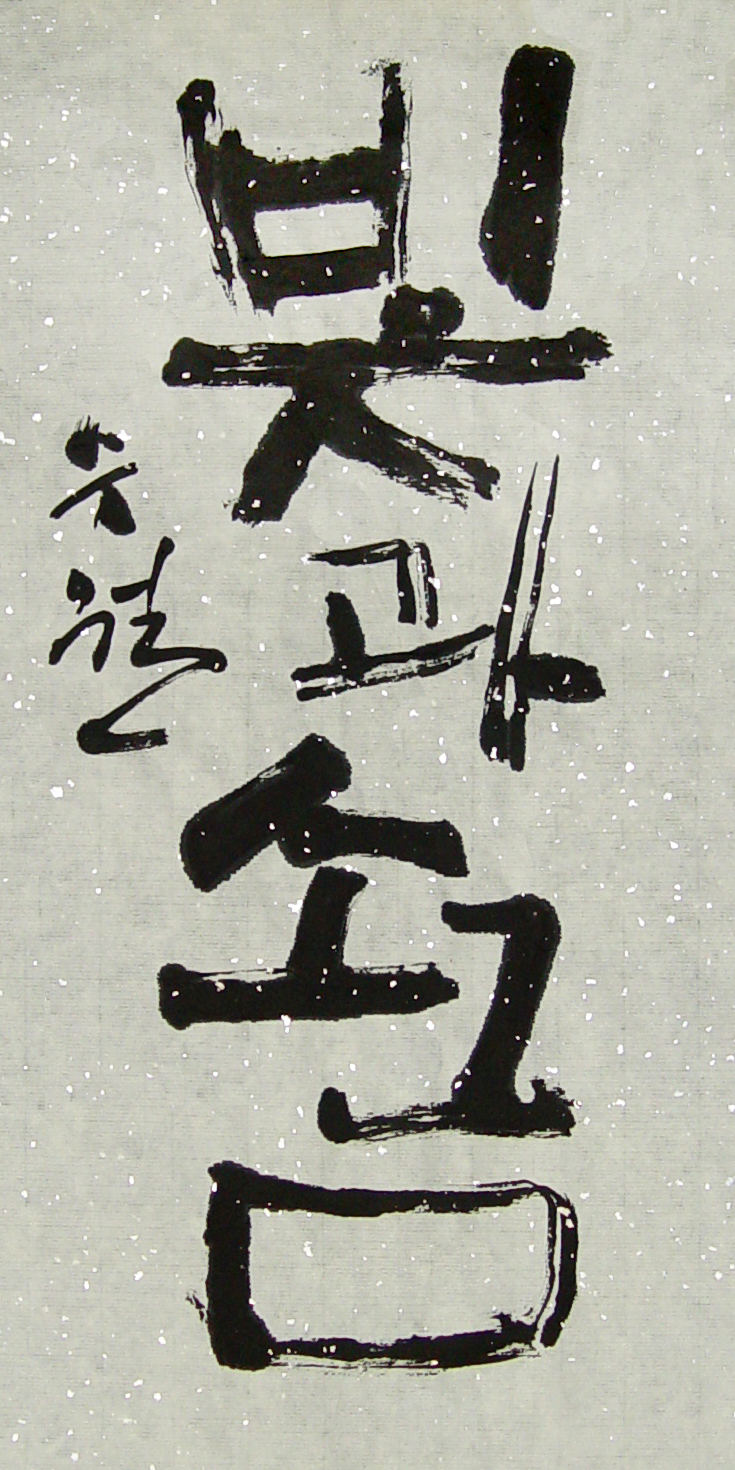 빛과소금